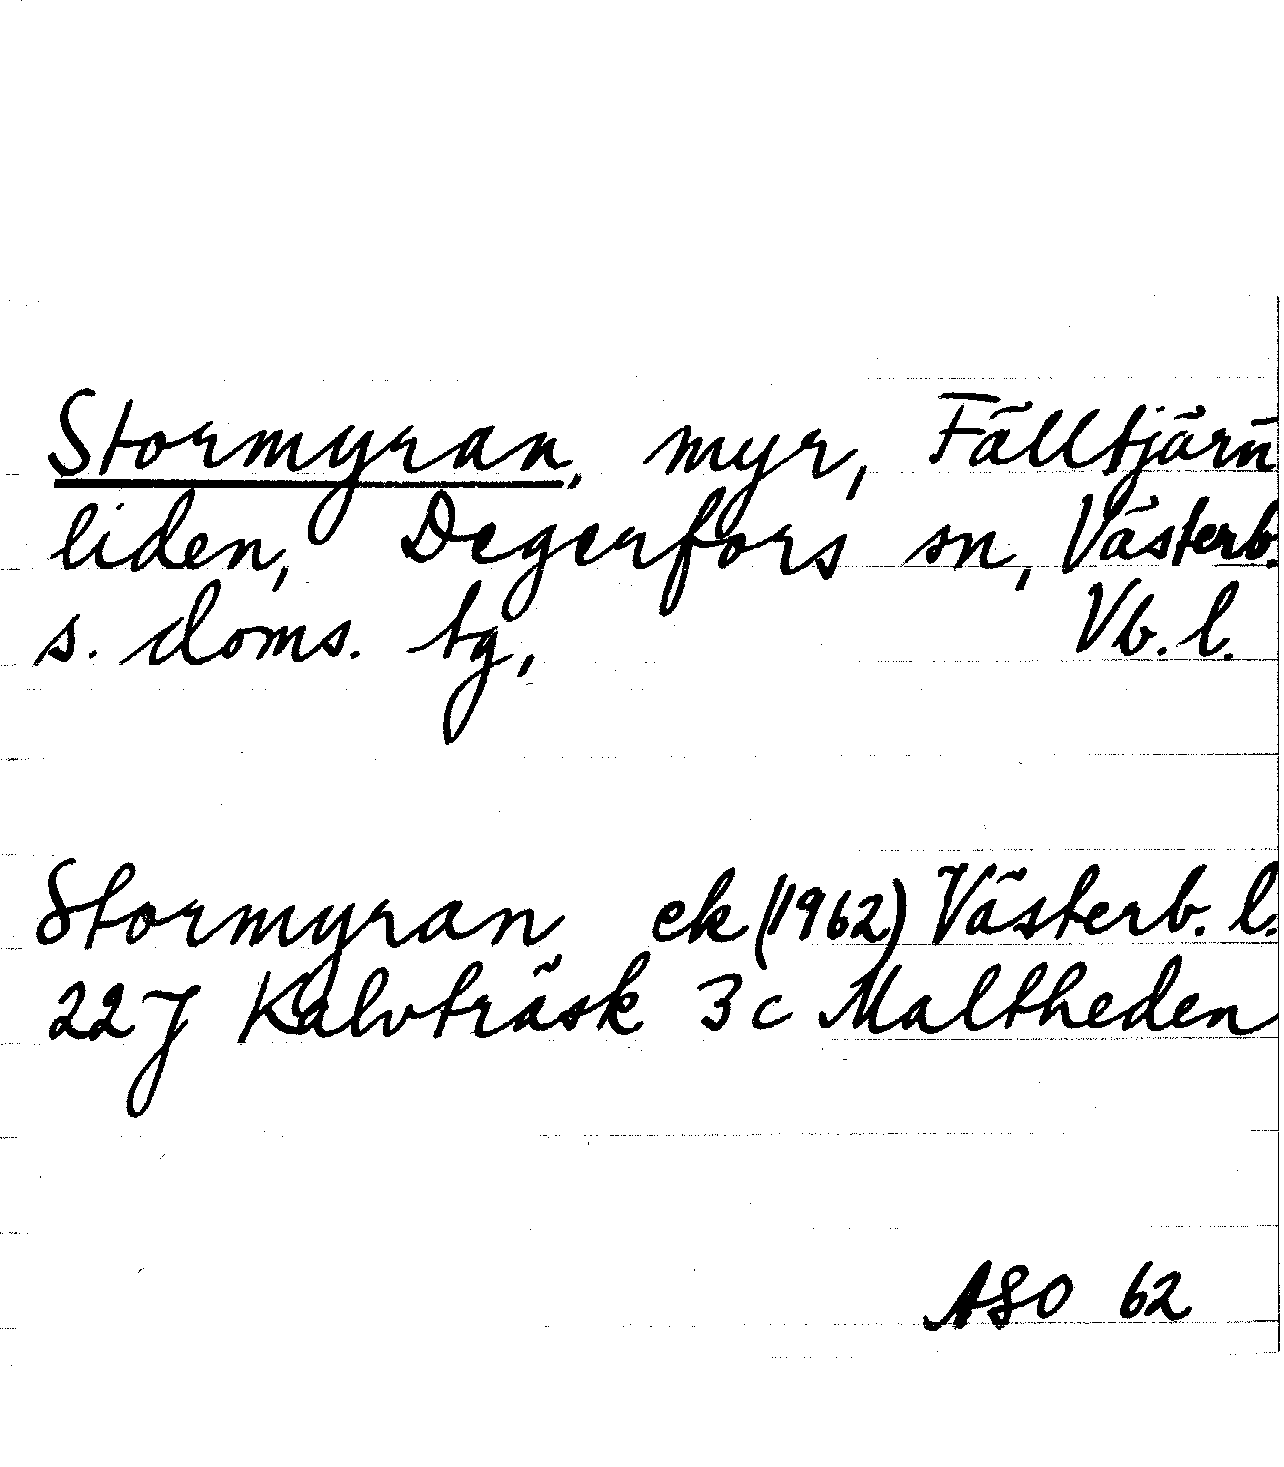 Stormyran, myr, Fälltjärn
liden, Degerfors sn, Västerb.
s. doms. tg, Vb. l.
Stormyran ek (1962) Västerb. l.
22J Kalvträsk 3c Maltheden
ASO 62